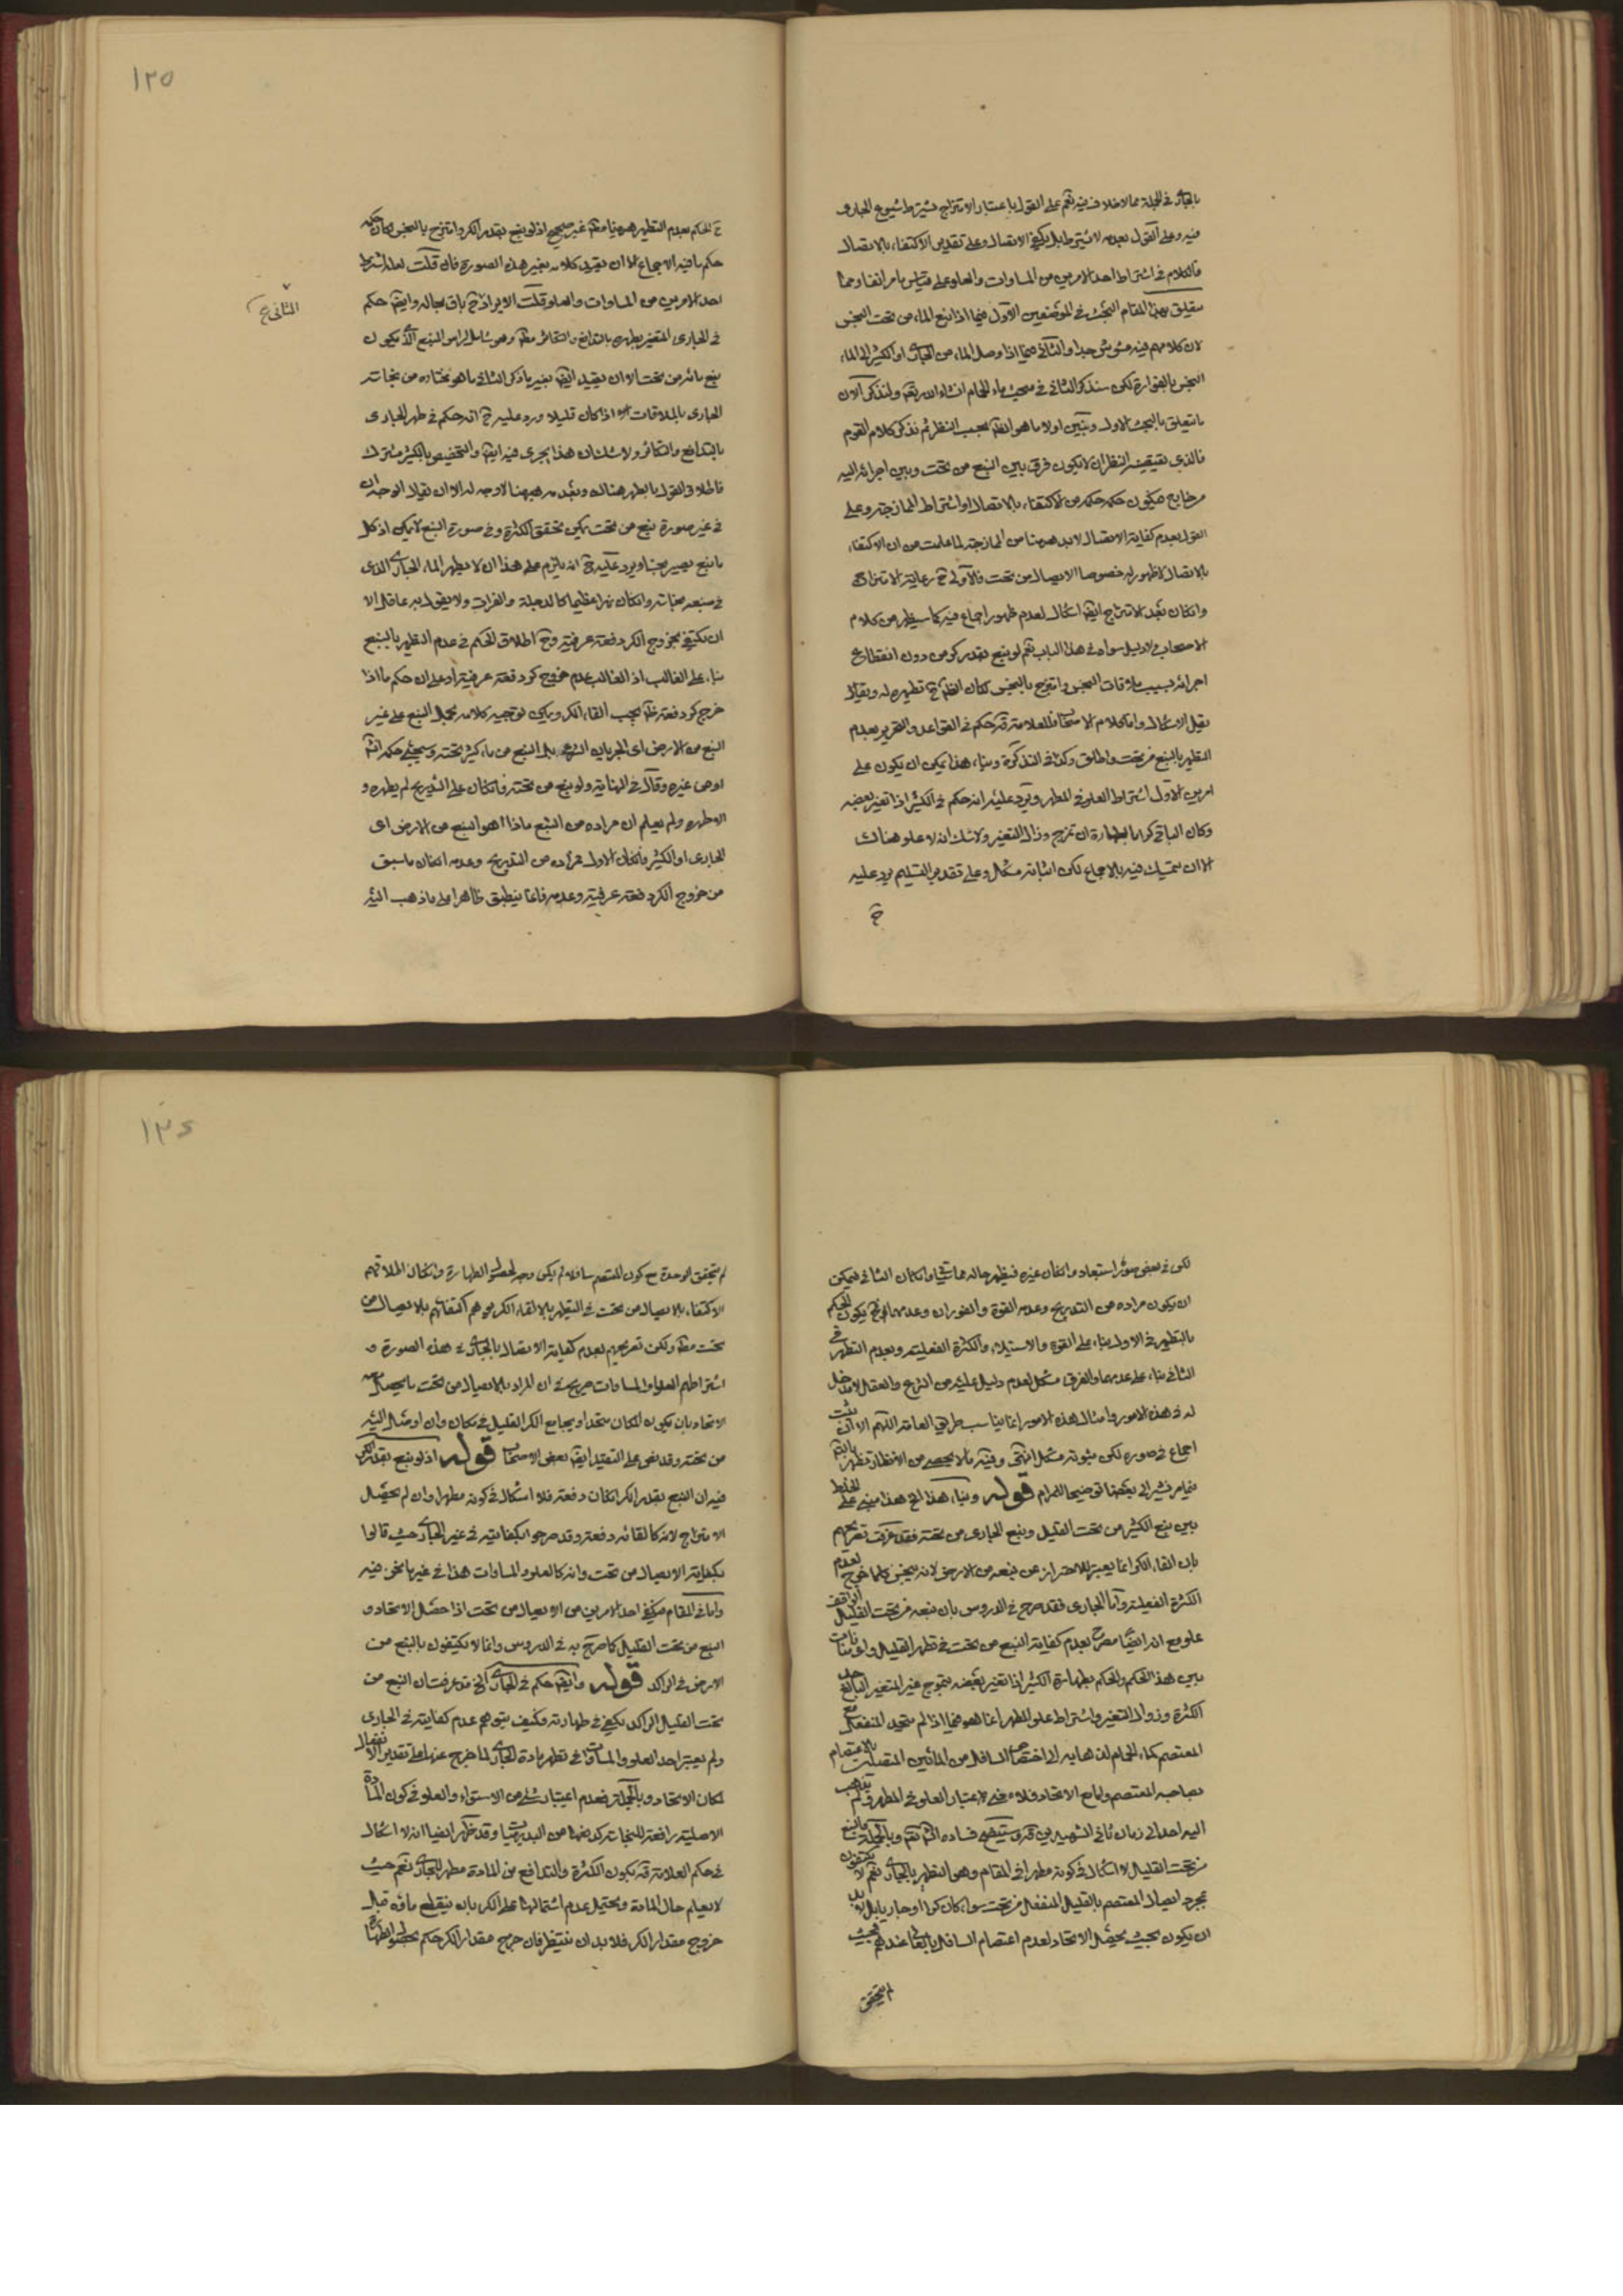 بالجاري في الجملة مما لا خلاف فيه نعم على القول باعتبار الامتزاج يشترط شيوع الجاري
فيه وعلى القول بعدمه لا يشترط بل يكفي الاتصال وعلى تقدير الاكتفاء بالاتصال
فالكلام في اشتراط احد الامرين من المساوات والعلو على قياس ما مر انفا ومما
يتعلق بهذا المقام البحث في الموضعين الاول فيما اذا نبع الماء من تحت النجس
لان كلامهم فيه مشوش جدا والثاني فيما اذا وصل الماء من الجاري او الكثير الى الماء
النجس بالفوارة لكن سنذكر الثاني في مبحث ماء الحمام انشاء الله تعالى ولنذكر الان
ما يتعلق بالبحث الاول ونبين اولا ما هو الظ بحسب النظر ثم نذكر كلام القوم
فالذي يقتضيه النظر ان لا يكون فرق بين النبع من تحت وبين اجرائه اليه
من خارج فيكون حكمه حكمه من الاكتفاء بالاتصال او اشتراط الممازجة وعلى
القول بعدم كفاية الاتصال لابد ههنا من الممازجة لما علمت من ان الاكتفاء
بالاتصال لا ظهور له خصوصا الاتصال من تحت فالاولى ح رعاية الامتزاج
وان كان بعد الامتزاج ايضا اشكال لعدم ظهور اجماع فيه كما سيظهر من كلام
الاصحاب ولا دليل سواه في هذا الباب نعم لو نبع بقدر كر من دون انقطاع
اجزائه بسبب ملاقات النجس وامتزج بالنجس لكان الظ ح تطهيره له ويقال
بقي الاشكال واما كلام الاصحاب فالعلامة ره حكم في القواعد والتحرير بعدم
التطهير بالنبع من تحت واطلق وكذا في التذكرة وبناء هذا يمكن ان يكون على
امرين الاول اشتراط العلو في المطهر ويرد عليه انه حكم في الكثير اذا تغير بعضه
وكان الباقي كرا بالطهارة ان تمزج وزال التغير ولا شك انه لا علو هناك
الا ان يتمسك فيه بالاجماع لكن اثباته مشكل وعلى تقدير التسليم يرد عليه
ح
١٢٥
ح الحكم بعدم التطهير ههنا مط غير صحيح اذ لو نبع بقدر الكر وامتزج بالنجس لكان حكمه
حكم ما فيه الاجماع الا ان يقيد كلامه بغير هذه الصورة فان قلت لعله اشترط
احد الامرين من المساوات والعلو قلت الايراد ح باق بحاله وايضا حكم
الثاني ع
في الجاري المتغير بطهره بالتدافع والتكاثر مط وهو شامل لراس المنبع الذي يكون
ينبع مائه من تحت الا ان يقيد ايضا بغير ما ذكر الثاني ما هو مختاره من نجاسة
الجاري بالملاقات اذا كان قليلا ويرد عليه ح انه حكم في طهر الجاري
بالتدافع والتكاثر ولا شك ان هذا يجري فيه ايضا والتخصيص بالكثير مشترك
فاطلاق القول بالطهر هناك وبعدمه ههنا لا وجه له الا ان يقال الوجه ان
في غير صورة نبع من تحت يمكن تحقق الكثرة وفي صورة النبع لا يمكن اذ كل
ما نبع يصير نجسا ويرد عليه ح انه يلزم على هذا ان لا يطهر الماء الجاري الذي
في منبعه نجاسة وان كان نهرا عظيما كالدجلة والفرات ولا يقول به عاقل الا
ان يكتفي بخروج الكر دفعة عرفية وح اطلاق الحكم في عدم التطهير بالنبع
بناء على الغالب اذ الغالب عدم خروج كر دفعة عرفية او على ان حكم ما اذا
خرج كر دفعة ظ بحسب القاء الكر ويمكن توجيه كلامه بحمل النبع على غير
النبع من الارض اي الجريان الشرعي بل النبع من ماء كثير تحته وسيجئ حكمه انه
او من غيره وقال في النهاية ولو نبع من تحته فان كان على التدريج لم يطهره و
الا طهره ولم يعلم ان مراده من النبع ماذا اهو النبع من الارض اي
الجاري او الكثير فان كان الاول فمراده من التدريج وعدمه ان كان ما سبق
من خروج الكر دفعة عرفية وعدمه فانما ينطبق ظاهرا على ما ذهب اليه
لكن في بعض صوره استبعاد وان كان غيره فيظهر حاله مما سيجئ وان كان الثاني فيمكن
ان يكون مراده من التدريج وعدمه القوة والفوران وعدمهما وح يكون الحكم
بالتطهير في الاول بناء على القوة والاستيلاء والكثرة الفعلية وبعدم التطهير في
الثاني بناء على عدمهما والفرق مشكل لعدم دليل عليه من الشرع والعقل لا مدخل
له في هذه الامور وامثال هذه الامور انما يناسب طريق العامة اللهم الا ان يثبت
اجماع في صورة لكن ثبوته مشكل انتهى وفيه ما لا يحصى من الانظار تظهر بالتامل
فيما مر نشير الى بعضها توضيحا للمرام قوله وبناء هذا الخ هذا مبني على الخلط
بين نبع الكثير من تحت القليل ونبع الجاري من تحته فقد عرفت تصريحهم
بان القاء الكر انما يعتبر للاحتراز عن نبعه من الارض لانه ينجس كلما خرج لعدم
الكثرة الفعلية واما الجاري فقد صرح في الدروس بان نبعه من تحت القليل الواقف
علو مع انه ايضا مصرح بعدم كفاية النبع من تحت في تطهر القليل
بين هذا الحكم والحكم بطهارة الكثير اذا تغير بعضه بتموج غير المتغير البالغ حد
الكثرة وزوال التغير واشتراط علو المطهر انما هو فيما اذا لم يتحد المنفعل مع
المعتصم كماء الحمام لذهابه الى اختصاص السافل من المائين المتصلين بالاعتصام
بصاحبه المعتصم واما مع الاتحاد فلا معنى لاعتبار العلو في المطهر ولم يذهب
اليه احد الى زمان ثاني الشهيدين قده وستتضح فساده انشاء الله تعالى وبالجملة فالنبع
من تحت القليل لا اشكال في كونه مطهرا في المقام وهو التطهير بالجاري نعم لا يكتفون
بمجرد اتصال المعتصم بالقليل المنفعل من تحت سواء كان كرا او جاريا بل لابد
ان يكون بحيث يحصل الاتحاد لعدم اعتصام السافل بالعالي عندهم فحيث
لم يتحقق
١٢٦
لم يتحقق الوحدة مع كون المعتصم سافلا لم يكن وجه لحصول الطهارة وان كان الملاقيهم
الاكتفاء بالاتصال من تحت في التطهير بالقاء الكر موهم اكتفائهم بالاتصال من
تحت مط ولكن تصريحهم بعدم كفاية الاتصال بالجاري في هذه الصورة و
اشتراطهم العلو او المساوات صريح في ان المراد بالاتصال من تحت ما يحصل معه
الاتحاد بان يكون المكان متحدا ويجامع الكر القليل في مكان وان اوصل اليه
من تحته وقد نص على التقييد ايضا بعض الاصحاب قوله اذ لو نبع بقدر الكر
فيه ان النبع بقدر الكر ان كان دفعة فلا اشكال في كونه مطهرا وان لم يحصل
الامتزاج لانه كالقائه دفعة وقد صرحوا بكفايته في غير الجاري حيث قالوا
بكفاية الاتصال من تحت وانه كالعلو والمساوات هذا في غير ما نحن فيه
واما في المقام فيكفي احد الامرين من الاتصال من تحت اذا حصل الاتحاد و
النبع من تحت القليل كما صرح به في الدروس وانما لا يكتفون بالنبع من
الارض في الراكد قوله وايضا حكم في الجاري الخ قد عرفت ان النبع من
تحت القليل الراكد يكفي في طهارته فكيف يتوهم عدم كفايته في الجاري
ولم يعتبر احد العلو والمساوات في تطهر مادة الجاري لما خرج عنها على تقدير الانفعال
لمكان الاتحاد وبالجملة فعدم اعتبار شئ من الاستواء والعلو في كون المادة
الاصلية رافعة للنجاسة كدفعها من البديهيات وقد ظهر ايضا انه لا اشكال
في حكم العلامة قه بكون الكثرة والتدافع من المادة مطهر للجاري نعم حيث
لا يعلم حال المادة ويحتمل عدم اشتمالها على الكر بان ينقطع مائه قبل
خروج مقدار الكر فلا بد ان ينتظر فان خرج مقدار الكر حكم بحصول الطهارة